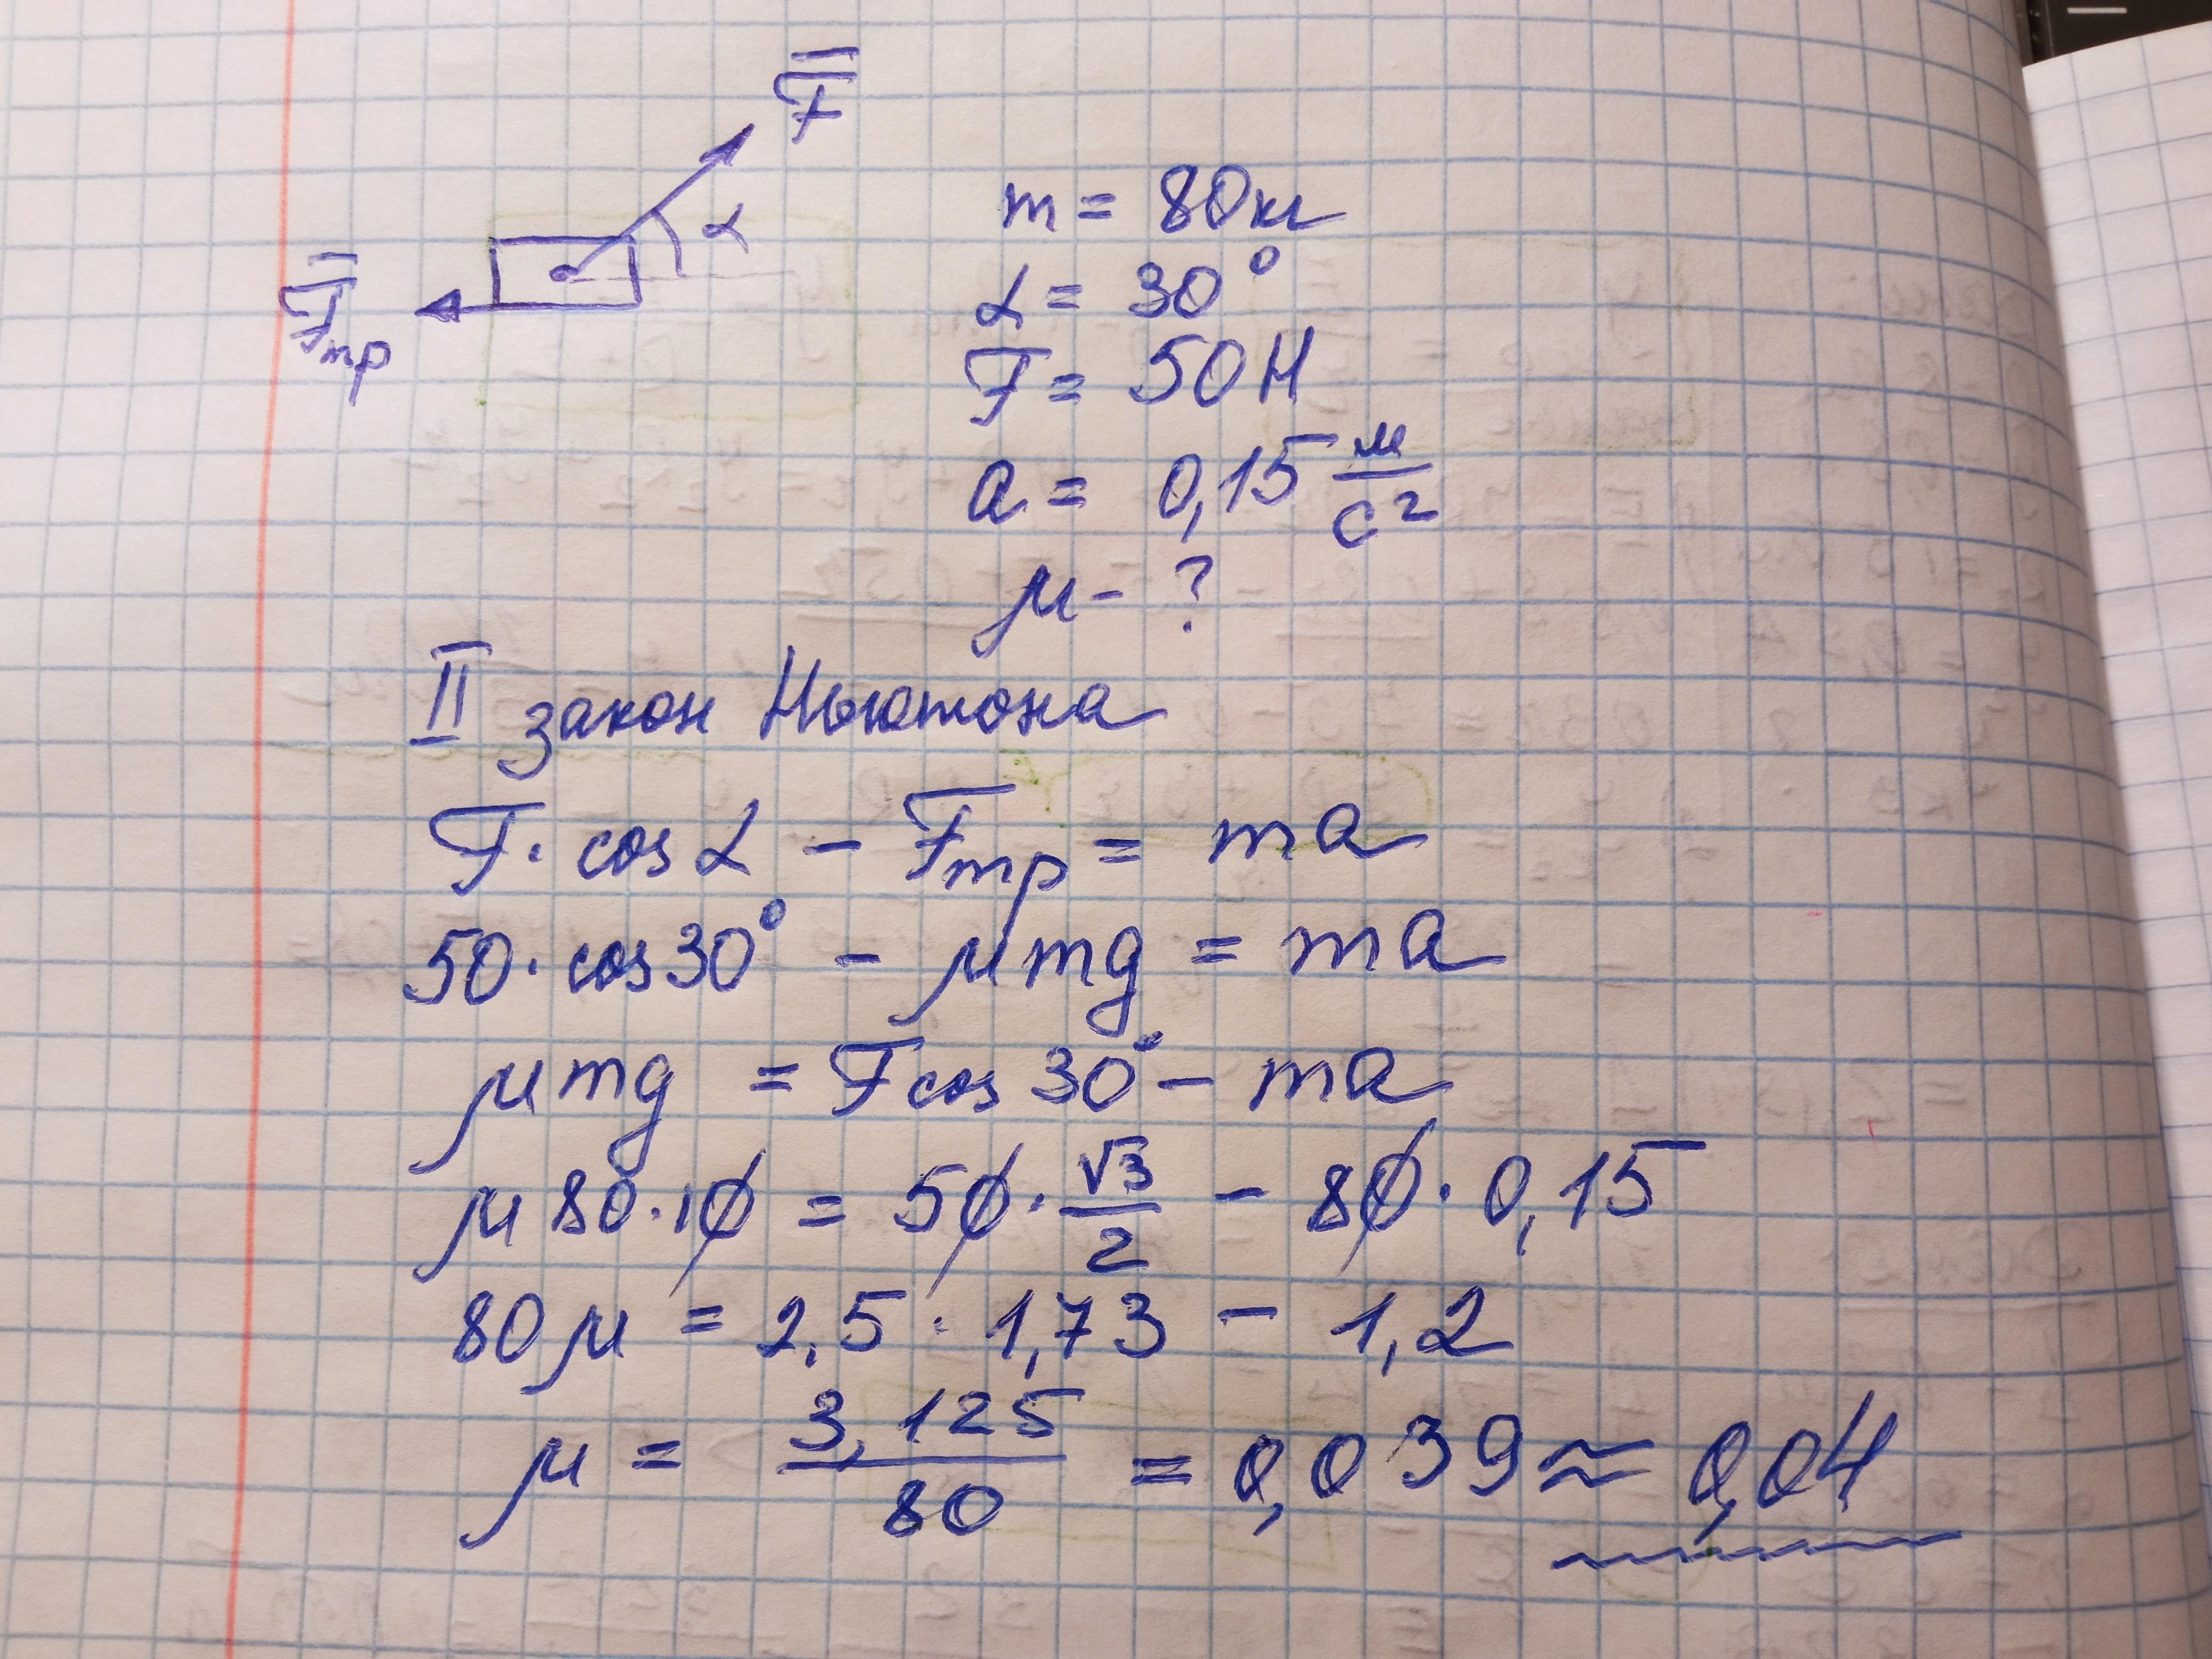 F
α
Fтр
m = 80кг
α = 30°
F = 50Н
a = 0,15 м/с²
μ - ?
II закон Ньютона
F · cos α - Fтр = ma
50 · cos 30° - μmg = ma
μmg = F cos 30° - ma
μ 80 · 10 = 50 · √3/2 - 80 · 0,15
80μ = 2,5 · 1,73 - 1,2
μ = 3,125/80 = 0,039 ≈ 0,04